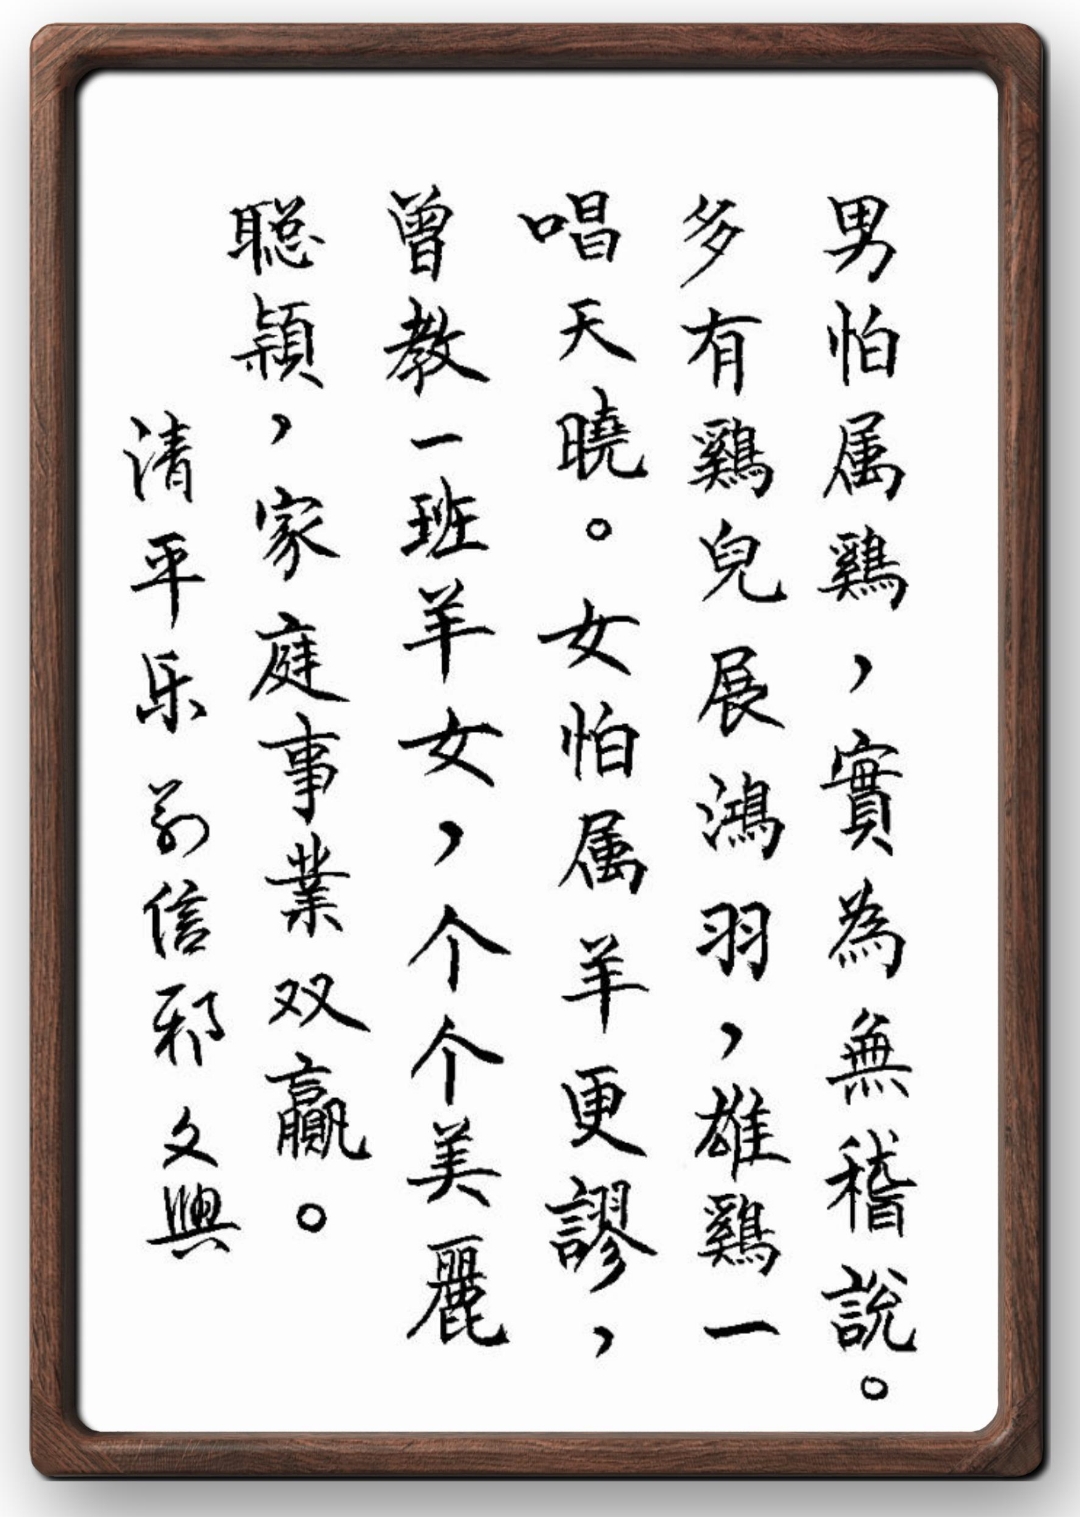 男怕属鷄，實為無稽說。
多有鷄兒展鴻羽，雄鷄一
唱天曉。女怕属羊更謬，
曾教一班羊女，个个美麗
聪颖，家庭事業双贏。
清平乐 莂信邪 文興